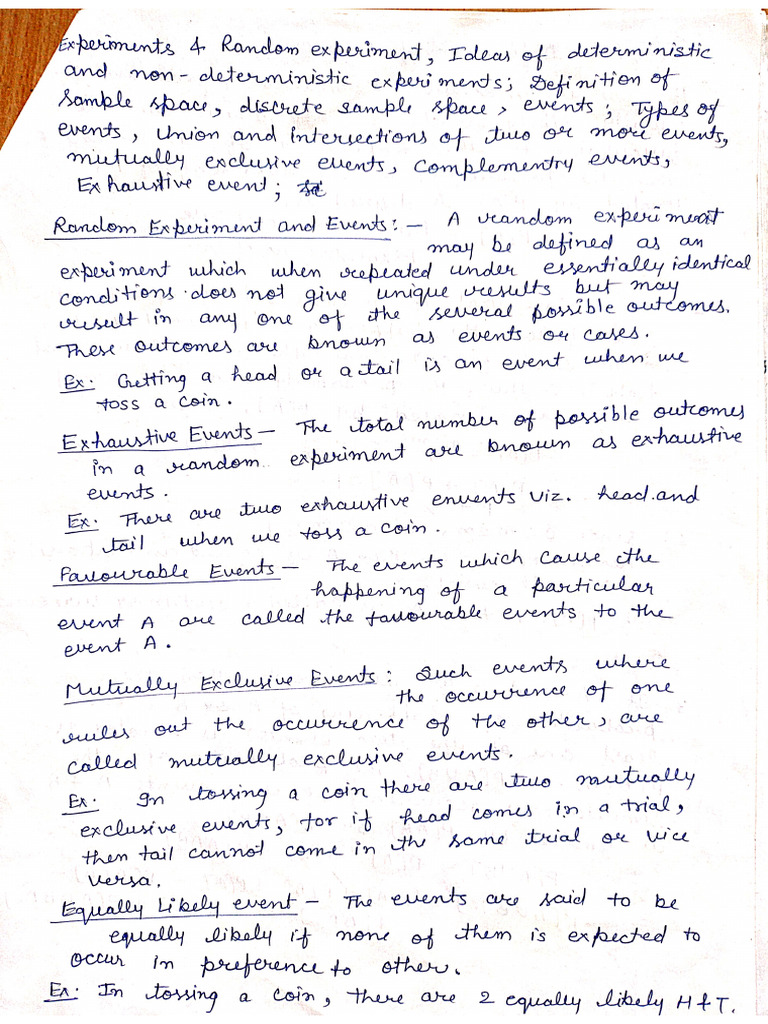 Experiments & Random experiment, Ideas of deterministic
and non-deterministic experiments; Definition of
Sample space, discrete sample space, events; Types of
events, Union and intersections of two or more events,
mutually exclusive events, Complementry events,
Exhaustive event;
Random Experiment and Events:- A random experiment
may be defined as an
experiment which when repeated under essentially identical
conditions does not give unique results but may
result in any one of the several possible outcomes.
These outcomes are known as events or cases.
Ex. Getting a head or a tail is an event when we
toss a coin.
Exhaustive Events - The total number of possible outcomes
in a random experiment are known as exhaustive
events.
Ex. There are two exhaustive envents viz. head and
tail when we toss a coin.
Favourable Events - The events which cause the
happening of a particular
event A are called the favourable events to the
event A.
Mutually Exclusive Events: Such events where
the occurrence of one
rules out the occurrence of the other, are
called mutually exclusive events.
Ex. In tossing a coin there are two mutually
exclusive events, for if head comes in a trial,
then tail cannot come in the same trial or vice
versa.
Equally Likely event - The events are said to be
equally likely if none of them is expected to
occur in preference to other.
Ex. In tossing a coin, there are 2 equally likely H & T.